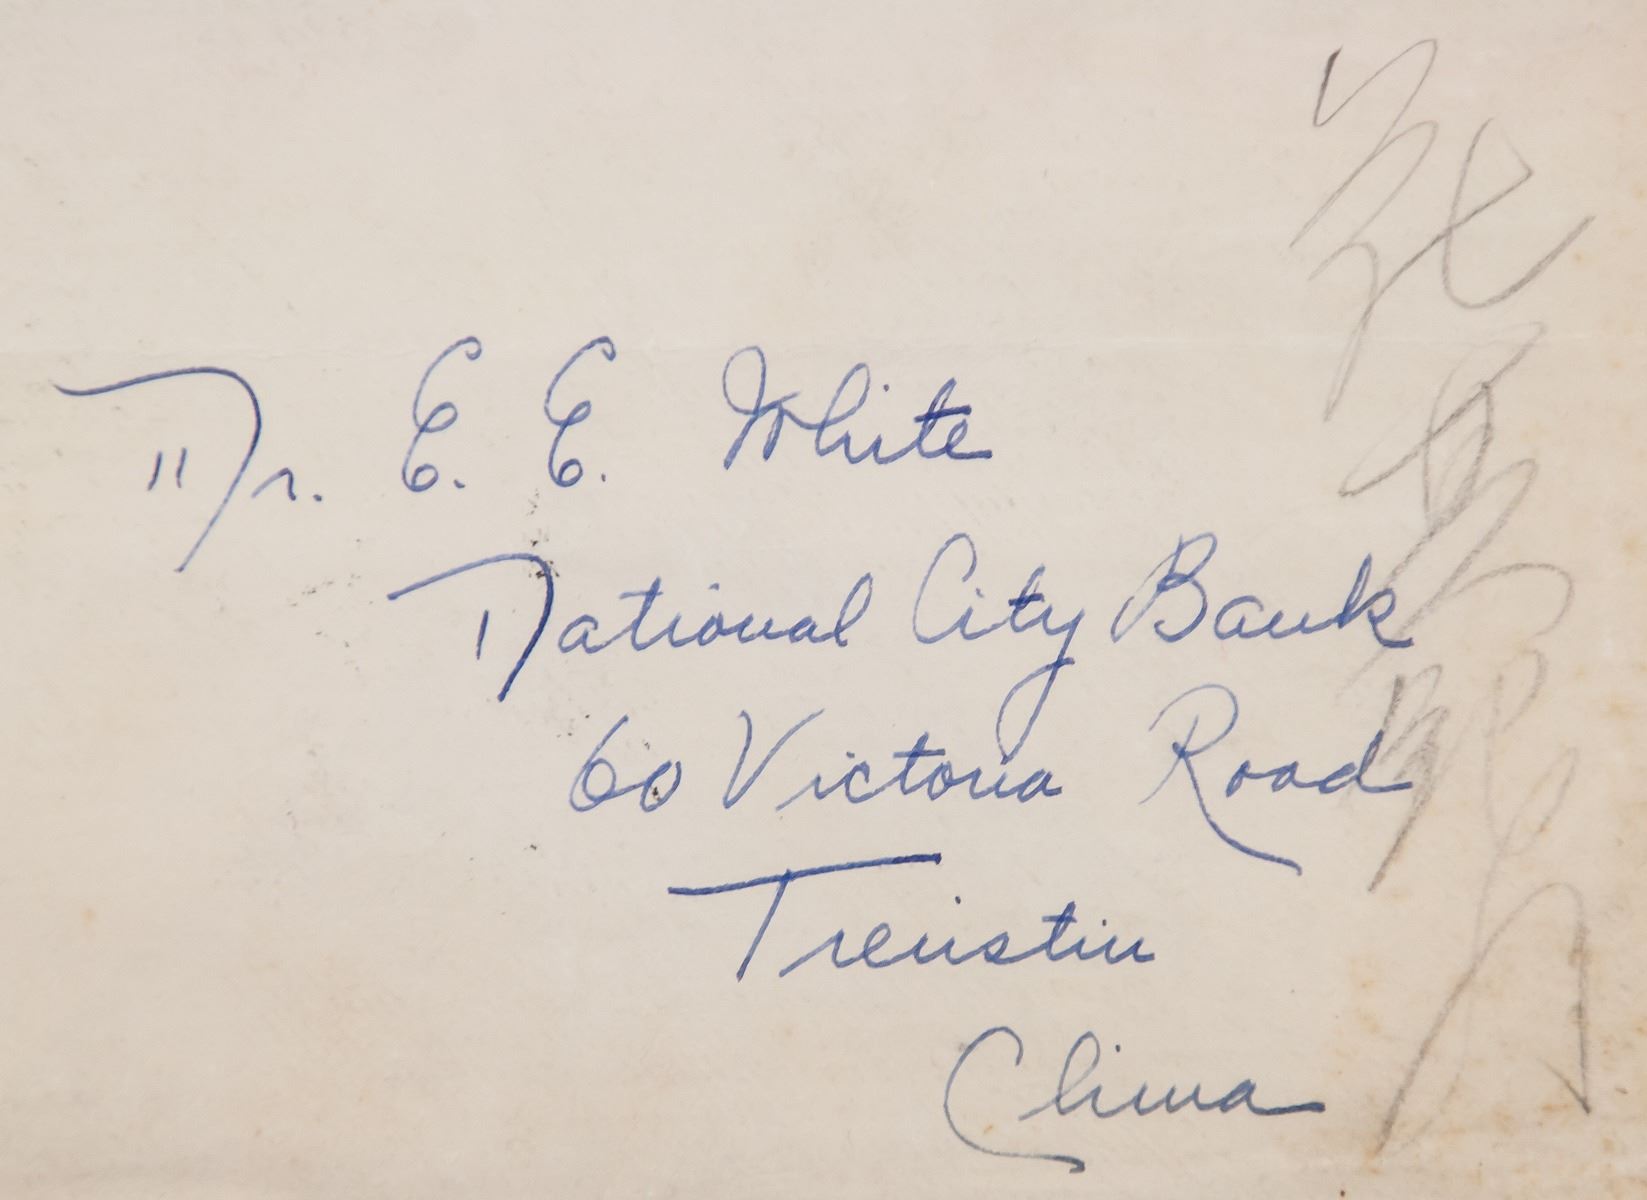 Mr. E. E. White
National City Bank
60 Victoria Road
Tienstin
China